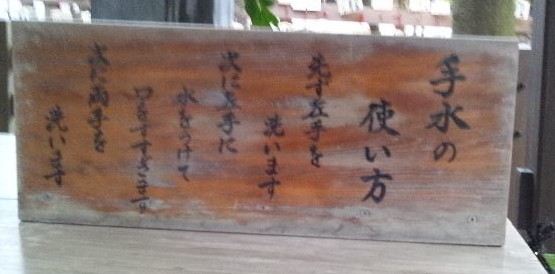 手水の
使い方
先ず左手を
洗います
次に左手に
水をうけて
口をすすぎます
次に両手を
洗います